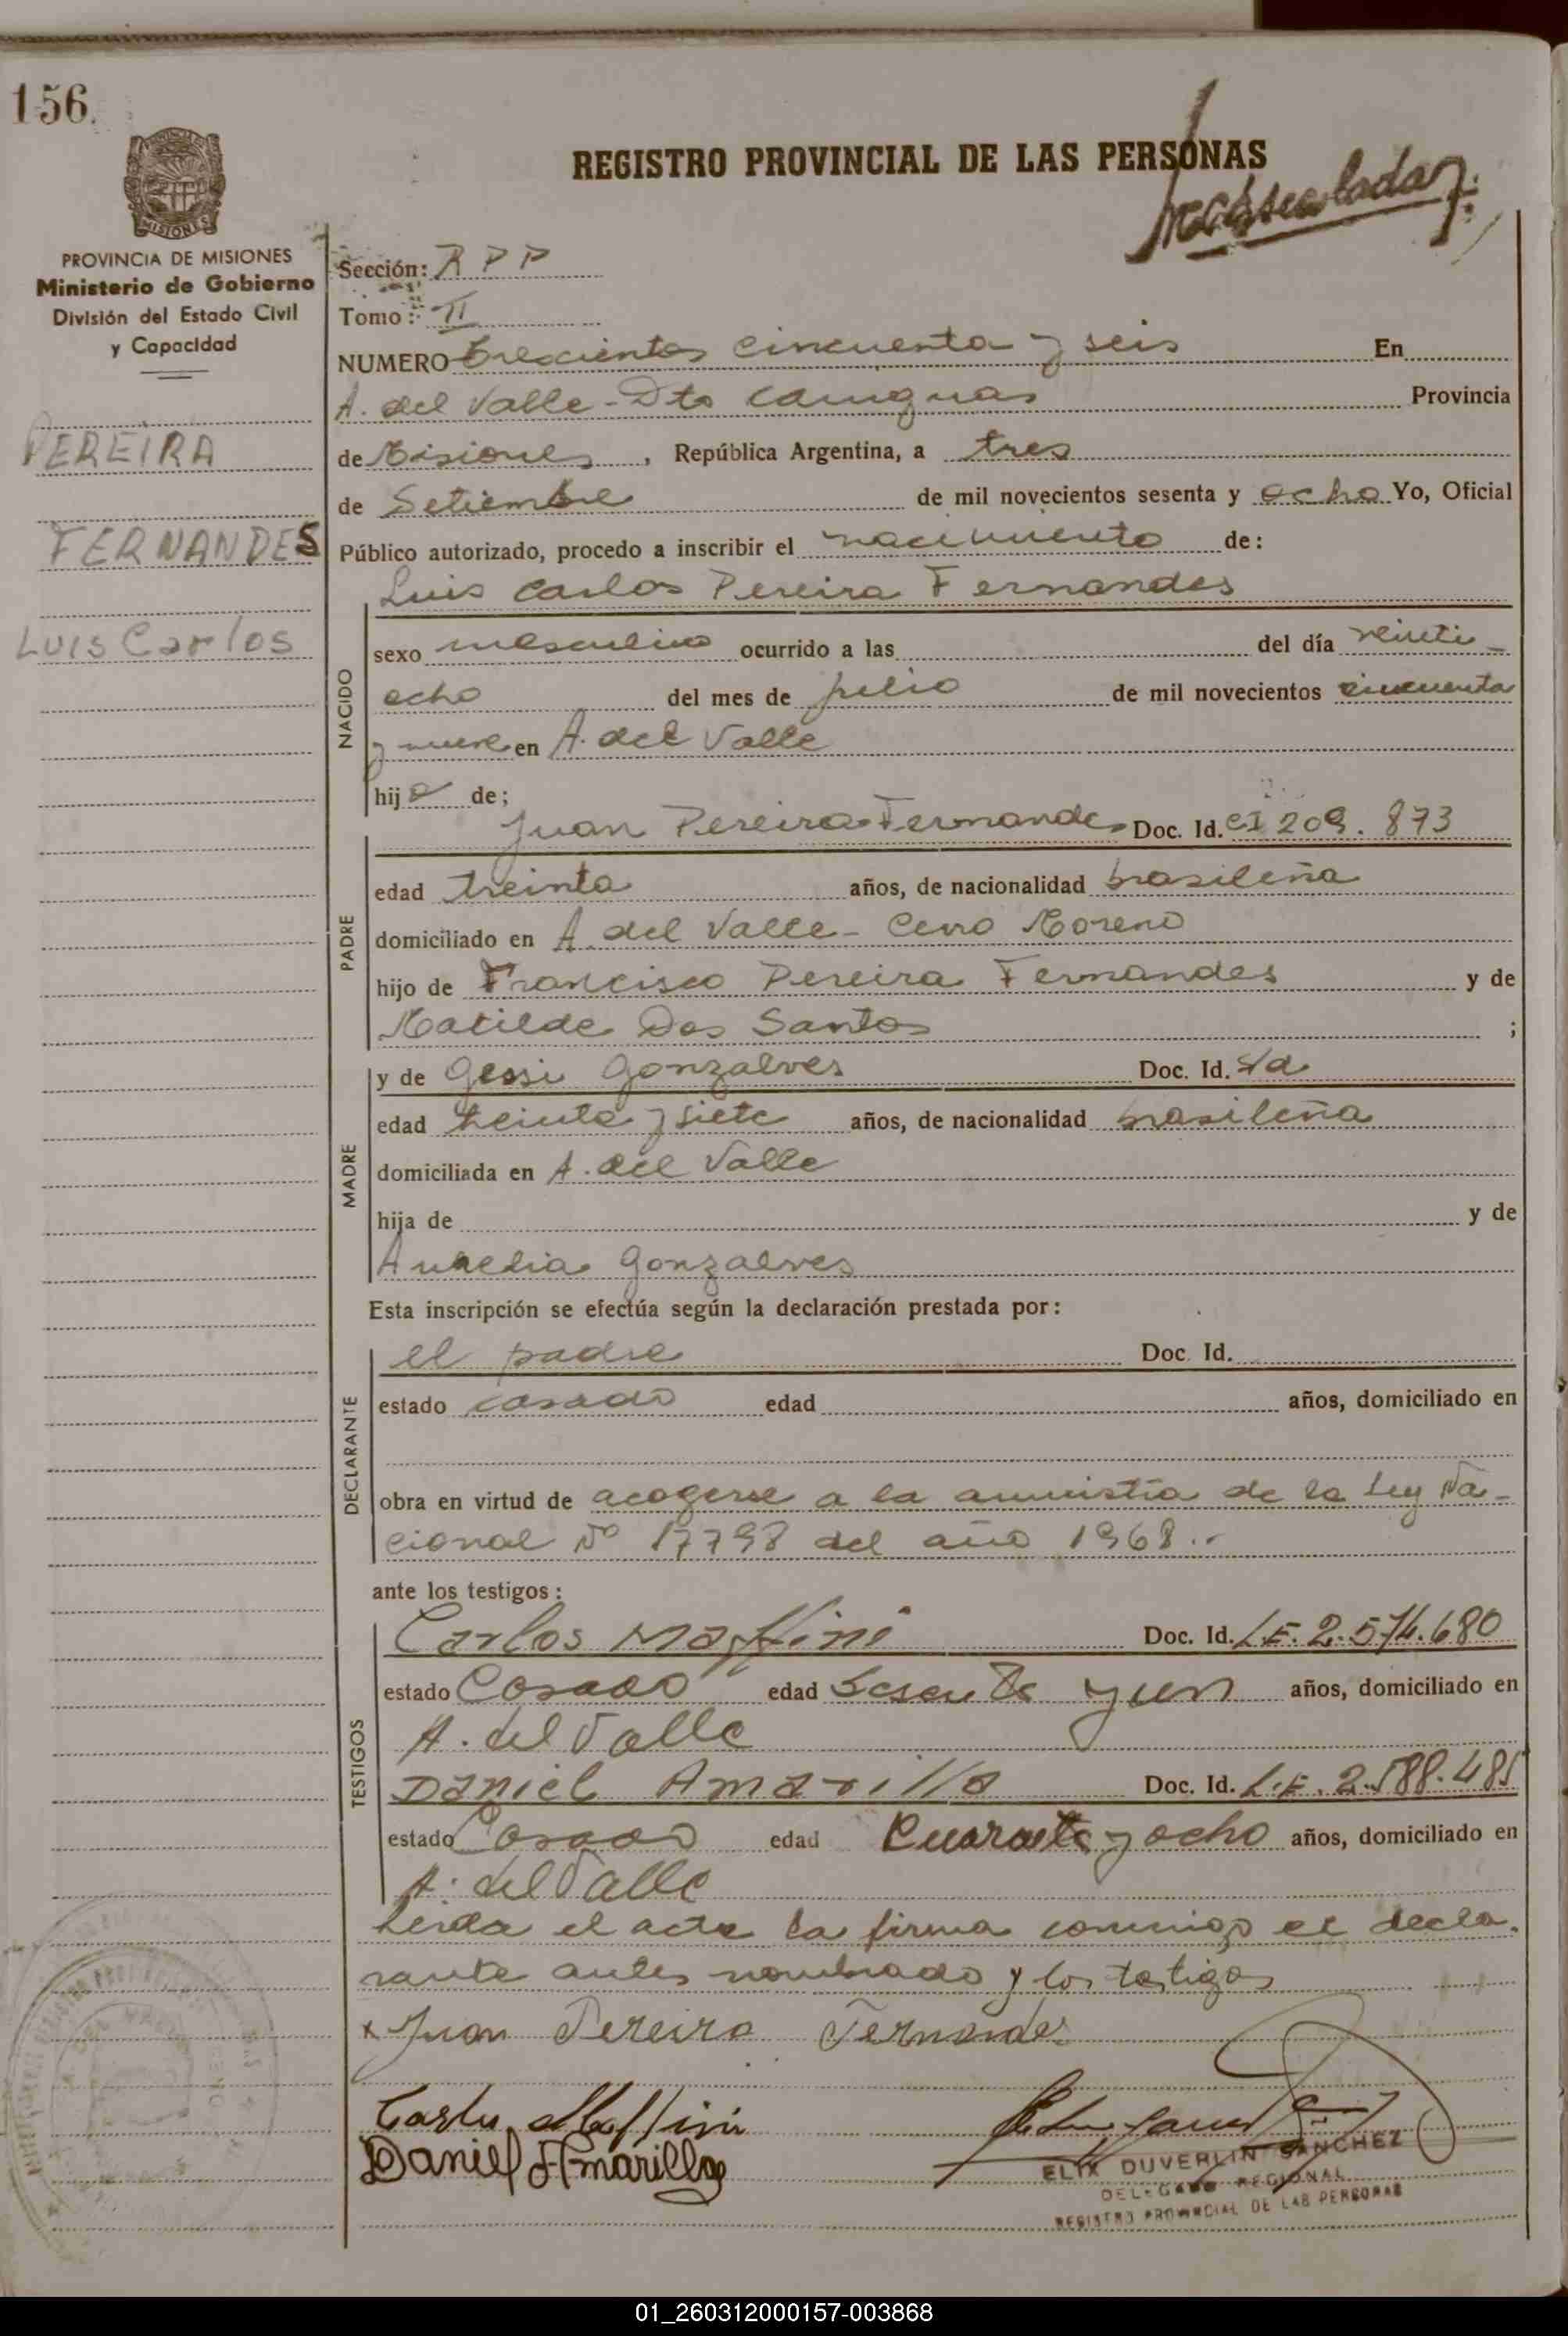 156.
REGISTRO PROVINCIAL DE LAS PERSONAS
PROVINCIA DE MISIONES
Ministerio de Gobierno
División del Estado Civil
y Capacidad
PEREIRA
FERNANDES
Luis Carlos
Sección: R P P
Tomo: II
NUMERO trescientos cincuenta y seis En
A. del Valle - Dto Cainguas Provincia
de Misiones, República Argentina, a tres
de Setiembre de mil novecientos sesenta y ocho Yo, Oficial
Público autorizado, procedo a inscribir el nacimiento de:
Luis Carlos Pereira Fernandes
NACIDO
sexo masculino ocurrido a las del día veinti-
ocho del mes de julio de mil novecientos cincuenta
y nueve en A. del Valle
hijo de;
PADRE
Juan Pereira Fernandes Doc. Id. CI 209.873
edad treinta años, de nacionalidad brasileña
domiciliado en A. del Valle - Cerro Moreno
hijo de Francisco Pereira Fernandes y de
Matilde Dos Santos ;
MADRE
y de Gessi Gonzalves Doc. Id. s/d
edad treinta y siete años, de nacionalidad brasileña
domiciliada en A. del Valle
hija de y de
Aurelia Gonzalves
Esta inscripción se efectúa según la declaración prestada por:
DECLARANTE
el padre Doc. Id.
estado casado edad años, domiciliado en
obra en virtud de acogerse a la amnistía de la Ley Na-
cional Nº 17798 del año 1968.-
ante los testigos:
TESTIGOS
Carlos Maffini Doc. Id. L.E. 2.574.680
estado Casado edad Sesenta y un años, domiciliado en
A. del Valle
Daniel Amarilla Doc. Id. L.E. 2.588.485
estado Casado edad Cuarenta y ocho años, domiciliado en
A. del Valle
Leida el acta la firma conmigo el decla-
rante antes nombrado y los testigos
x Juan Pereira Fernandes
Carlos Maffini
Daniel Amarilla
ELIX DUVERLIN SANCHEZ
DELEGADO REGIONAL
REGISTRO PROVINCIAL DE LAS PERSONAS
01_260312000157-003868